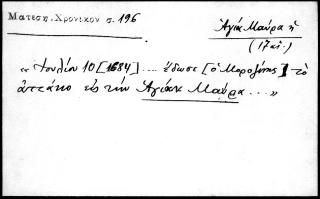 Ματεση. Χρονικον σ. 196
Ἁγία Μαύρα ἡ
(17 αἰ.)
« Ἰουλίου 10 [1684] .... ἔδωσε [ὁ Μοροζίνης] τὸ
ἀττάκο εἰς τὴν Ἁγίαν Μαύρα ... »